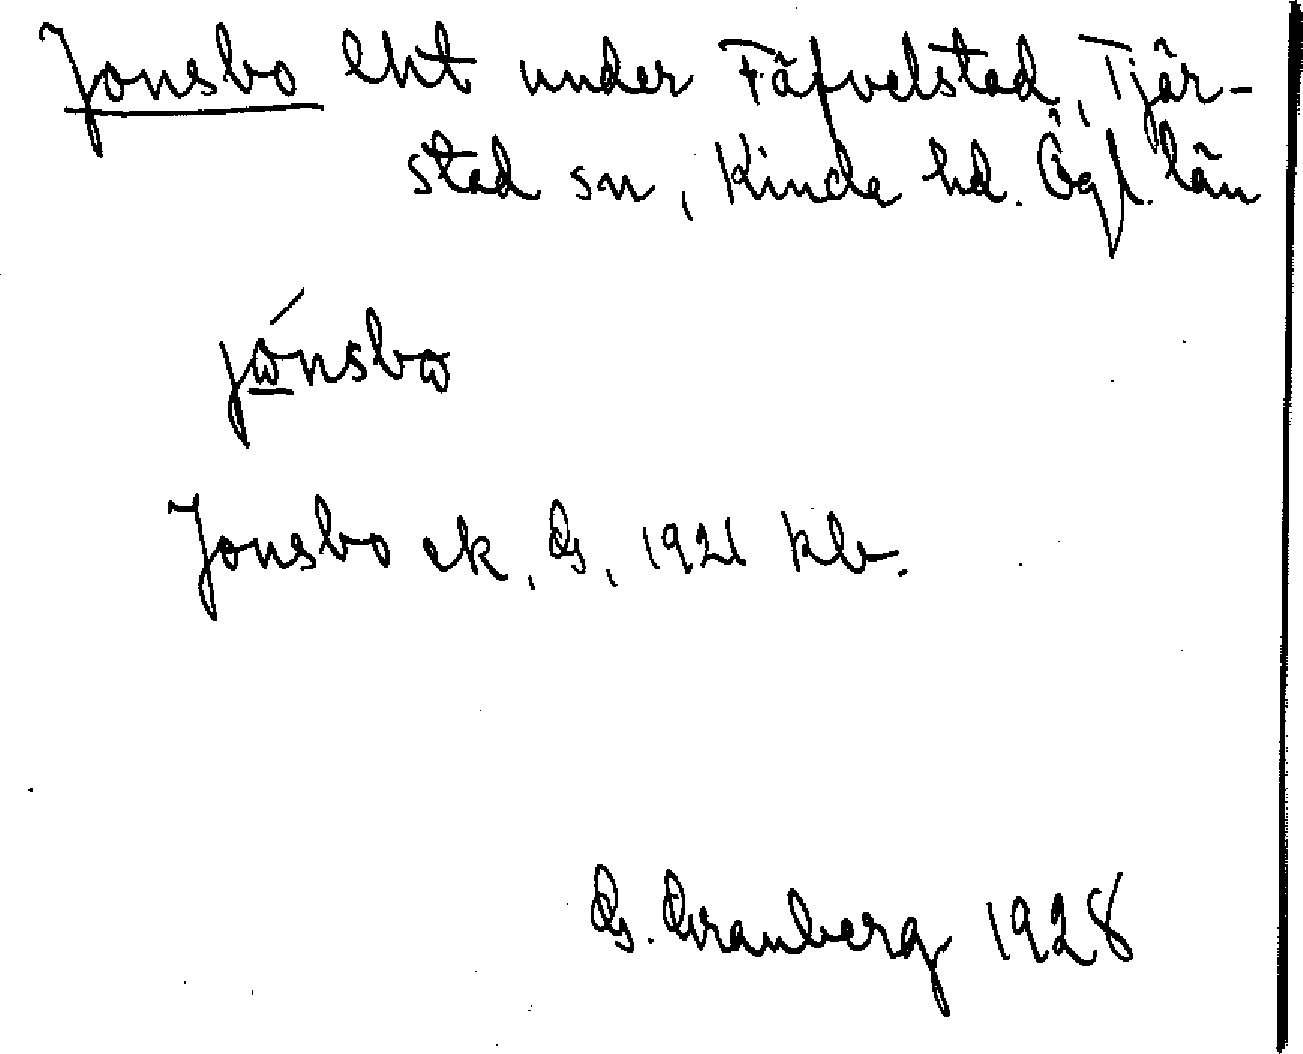 Jonsbo lht under Fäfvelstad, Tjär-
stad sn, Kinda hd. Ögl. län
jώnsbω
Jonsbo ek, G, 1921 kb.
G. Granberg 1928